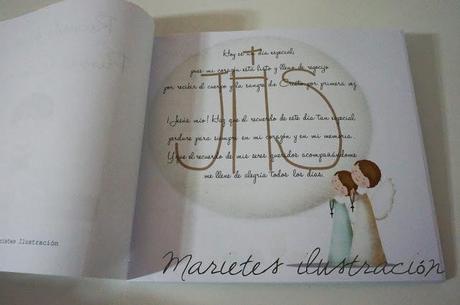 Hoy es un día especial,
pues mi corazón está listo y lleno de regocijo
por recibir el cuerpo y la sangre de Cristo por primera vez
JHS
¡Jesús mío! Haz que el recuerdo de este día tan especial
perdure para siempre en mi corazón y en mi memoria.
Y que el recuerdo de mis seres queridos acompañándome
me llene de alegría todos los días.
Ilustración
Marietes ilustración